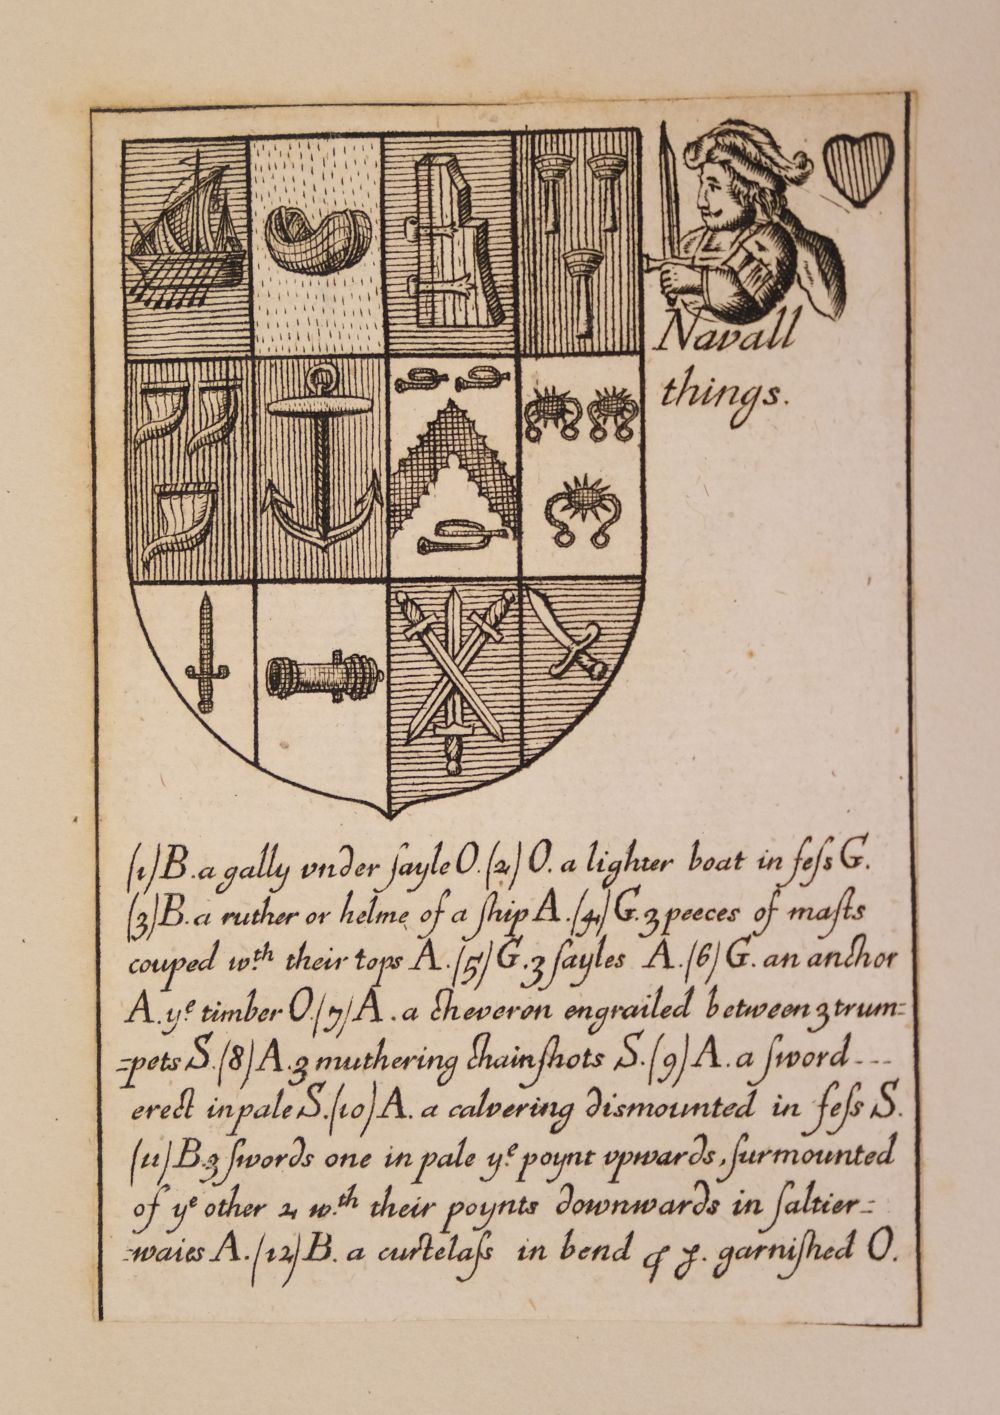 Navall
things.
(1) B. a gally vnder ſayle O. (2) O. a lighter boat in feſs G.
(3) B. a ruther or helme of a ſhip A. (4) G. 3 peeces of maſts
couped w.th their tops A. (5) G. 3 ſayles A. (6) G. an anchor
A. yᵉ timber O. (7) A. a cheveron engrailed between 3 trum=
=pets S. (8) A. 3 muthering chainſhots S. (9) A. a ſword ---
erect in pale S. (10) A. a calvering dismounted in feſs S.
(11) B. 3 ſwords one in pale y.ᵉ poynt vpwards, ſurmounted
of yᵉ other 2 w.th their poynts downwards in ſaltier=
=waies A. (12) B. a curtelaſs in bend garniſhed O.